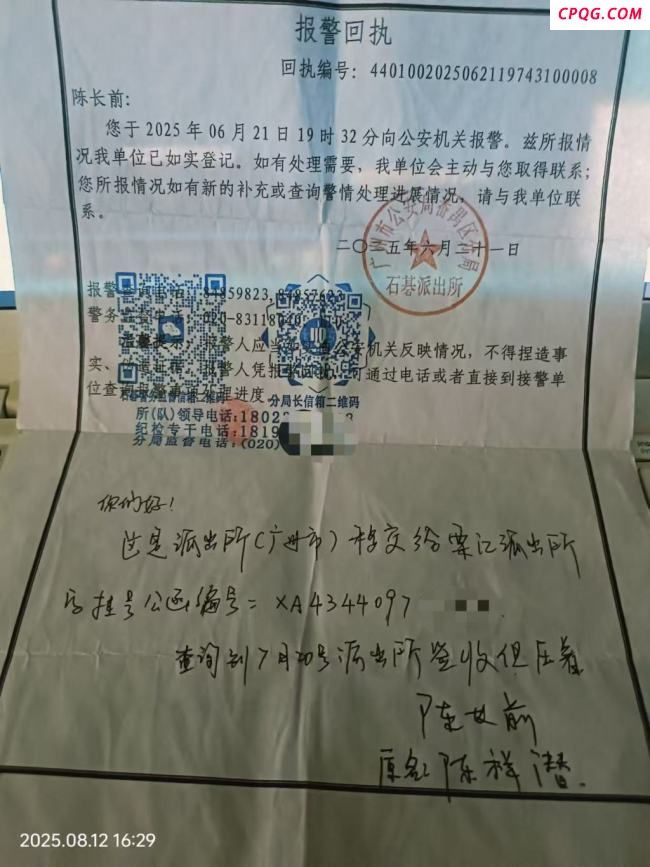 CPQG.COM
报警回执
回执编号: 4401002025062119743100008
陈长前:
您于 2025 年 06 月 21 日 19 时 32 分向公安机关报警。兹所报情
况我单位已如实登记。如有处理需要，我单位会主动与您取得联系；
您所报情况如有新的补充或查询警情处理进展情况，请与我单位联
系。
二〇二五年六月二十一日
广州市公安局番禺区分局
石碁派出所
报警查询电话 84859823
警务监督电话 020-83118
报警人应当如实向公安机关反映情况，不得捏造事
实、 报警人凭报警回执，可通过电话或者直接到接警单
位查询 处理进度
分局长信箱二维码
所(队)领导电话:1802
纪检专干电话:1819
分局监督电话:(020)
你们好！
这是派出所(广州市)移交给 江派出所
的挂号公函编号= XA4344097
查询到7月20号派出所签收但压着
陈长前
原名 陈祥潜.
2025.08.12 16:29